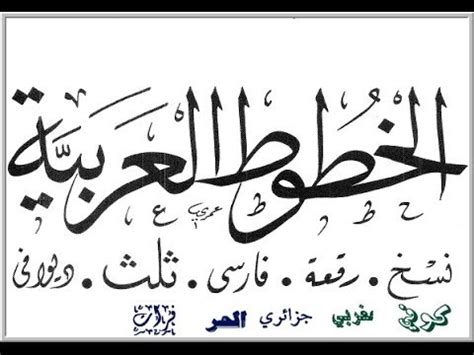 الخطوط العربية
نسخ . رقعة . فارسى . ثلث . ديوانى
كوفي مغربي جزائري الحر